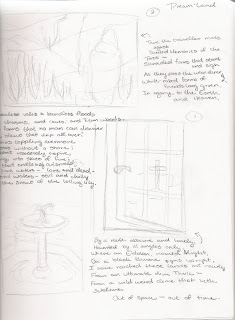 ② Dream-Land
There the traveller meets
aghast
Sheeted Memories of the
Past—
Shrouded forms that start
and sigh
As they pass the wanderer
by
White-robed forms of
friends long given,
In agony, to the Earth
and Heaven.
①
vales & boundless floods
chasms, and caves, and Titan woods,
forms that no man can discover
that drip all over;
toppling evermore
without a shore;
that restlessly aspire,
into skies of fire;
that endlessly outspread,
waters — lone and dead
waters — still and chilly
the snows of the lolling lily.
By a route obscure and lonely,
Haunted by ill angels only
Where an Eidolon, named Night,
On a black throne reigns upright,
I have reached these lands but newly
From an ultimate dim Thule—
From a wild weird clime that lieth,
sublime
Out of space — out of time.